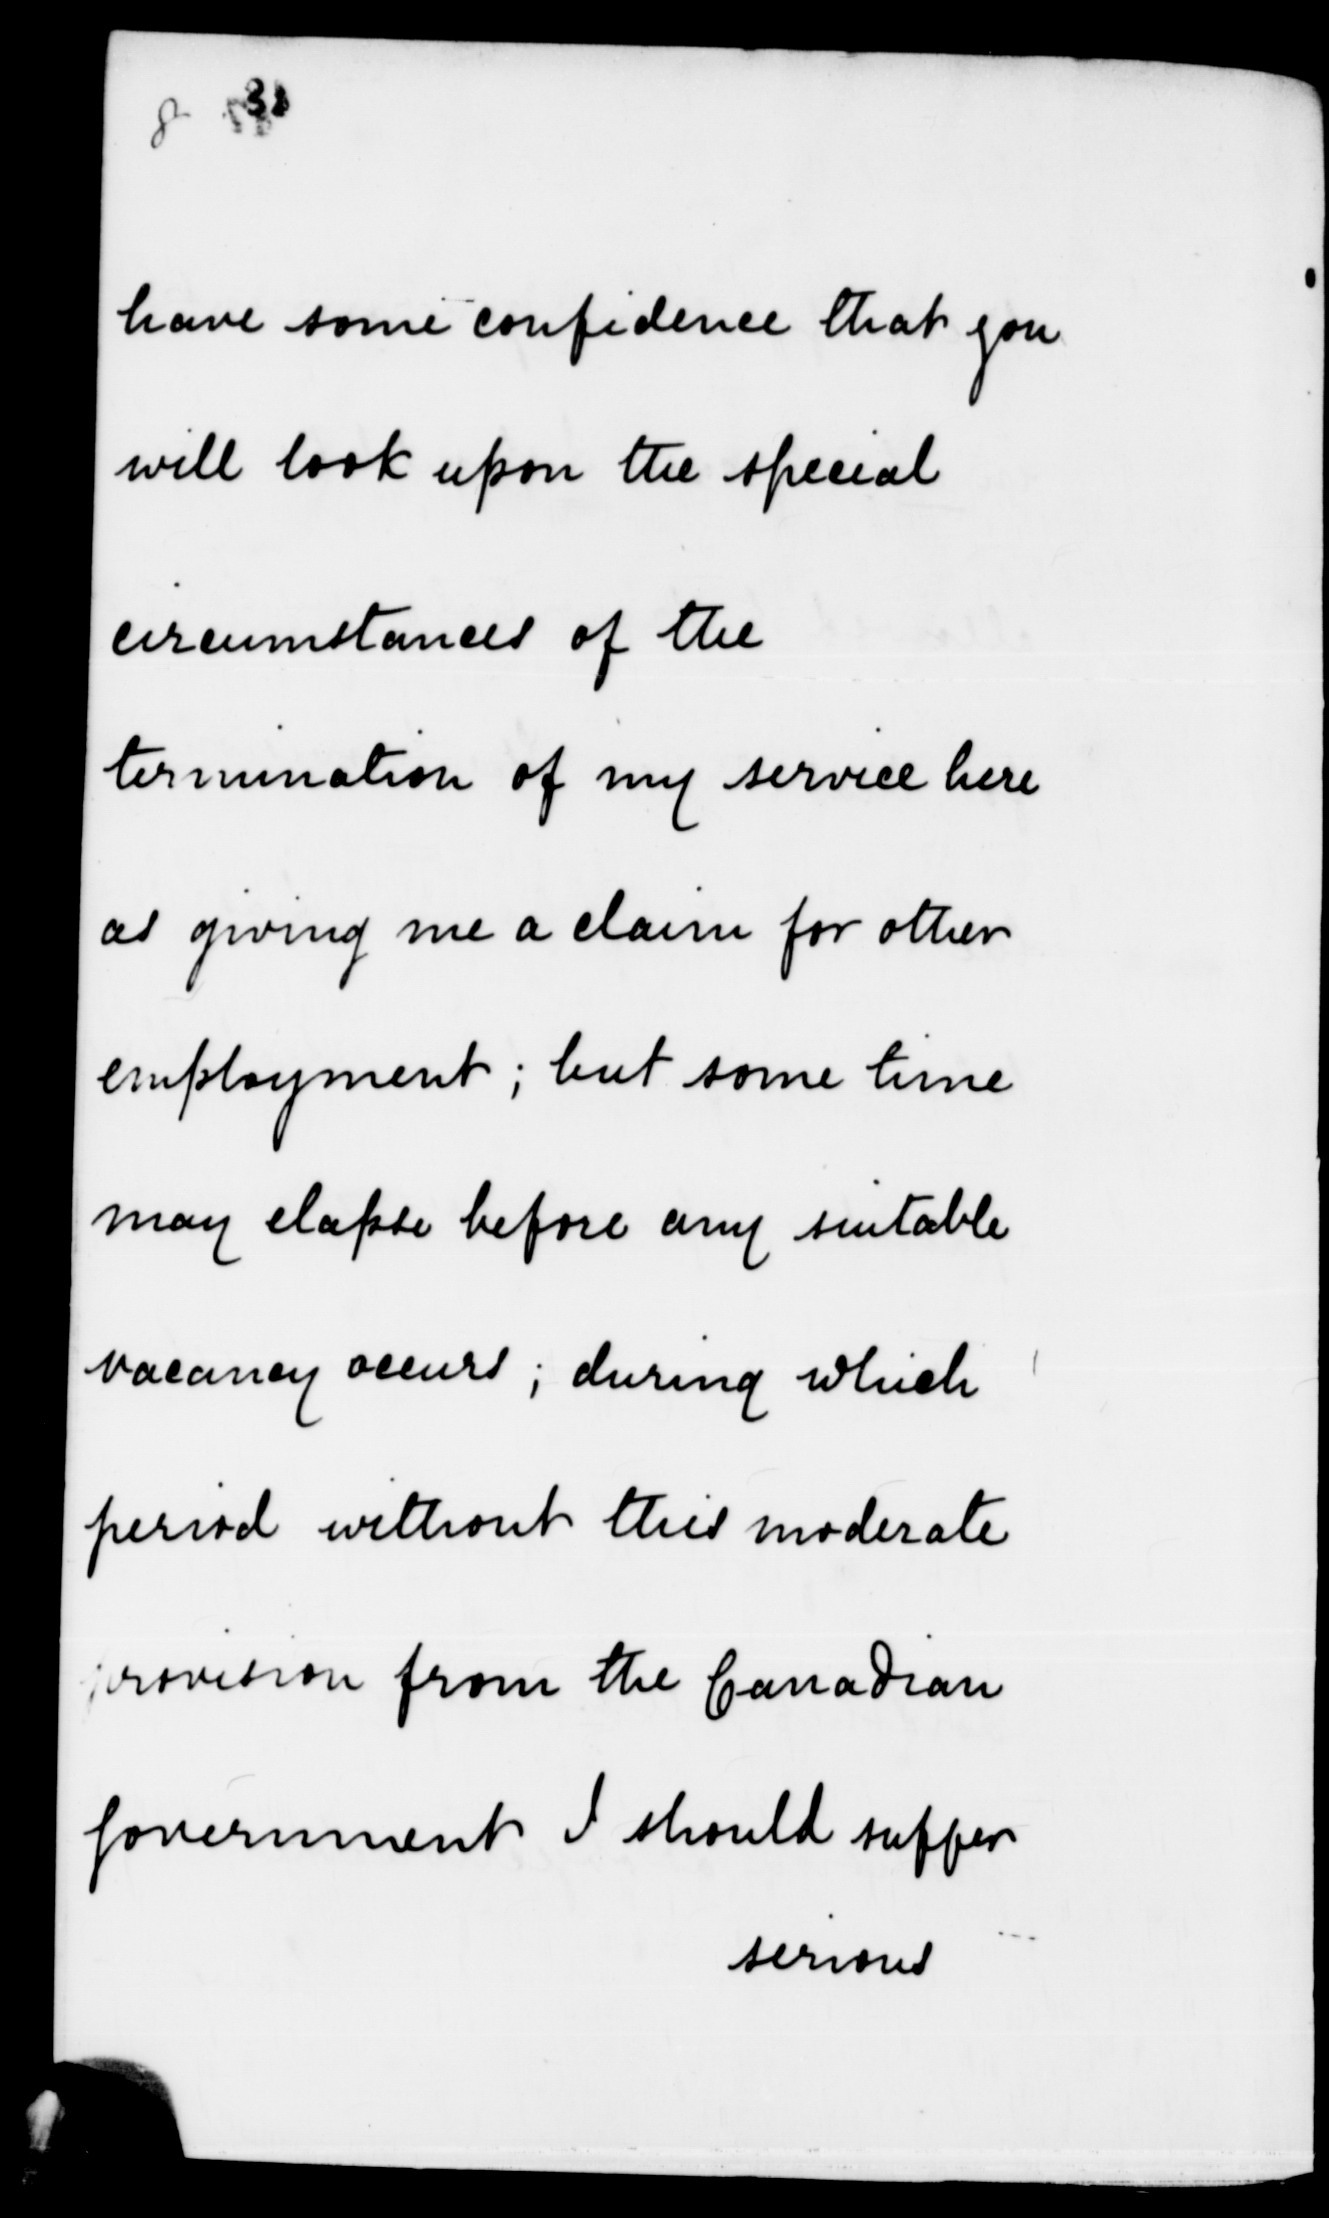 8
have some confidence that you
will look upon the special
circumstances of the
termination of my service here
as giving me a claim for other
employment; but some time
may elapse before any suitable
vacancy occurs; during which
period without this moderate
provision from the Canadian
Government I should suffer
serious